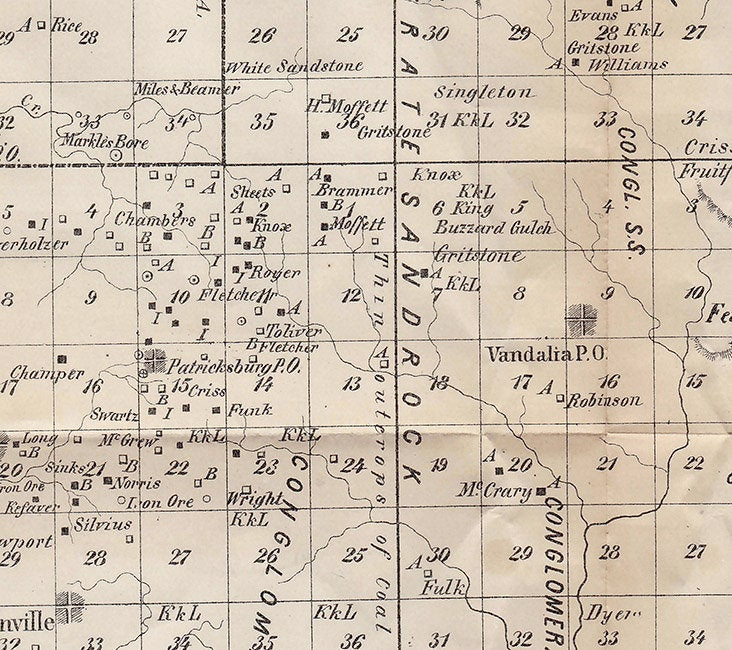 A.
29 A Rice 28 27 26 25 30 29 Evans A 28 KkL 27
Gritstone
A Williams
White Sandstone
Miles & Beamer
Singleton
Cr.
32 33 34 35 H. Moffett 36 Gritstone 31 KkL 32 33 34
Markles Bore
P.O.
Criss
Fruitf
RATE SANDROCK
CONGL. S.S.
Knox
KkL
A A A
Sheets Brammer
5 I 4 Chambers 3 A 2 B 1 6 King 5 4 3
Knox Moffett
Buzzard Gulch
erholzer B B B A
A I I Royer
Gritstone
A KkL
8 9 10 Fletcher 11 12 7 8 9 10
I I A
Toliver
B Fletcher
Fe
Vandalia P.O.
Patricksburg P.O.
Champer
A
17 16 15 Criss 14 13 18 17 A 16 15
B
Robinson
Swartz I Funk
Long McGrew KkL KkL
B
20 Sinks 21 B 22 B 23 24 19 A 20 21 22
Iron Ore B Norris
Kefaver Iron Ore Wright
McCrary A
KkL
Silvius
wport
29 28 27 26 25 30 29 28 27
A
Fulk
Thin outcrops of Coal
CONGLOM
CONGLOMER.
nville KkL KkL Dyer
32 33 34 35 36 31 32 33 34